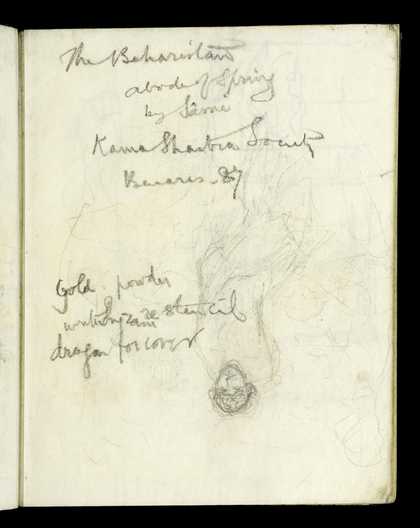 The Beharistan
abode of Spring
by Jâmi
Kama Shastra Society
Benares. 87
Gold powder
stencil
dragon for cover